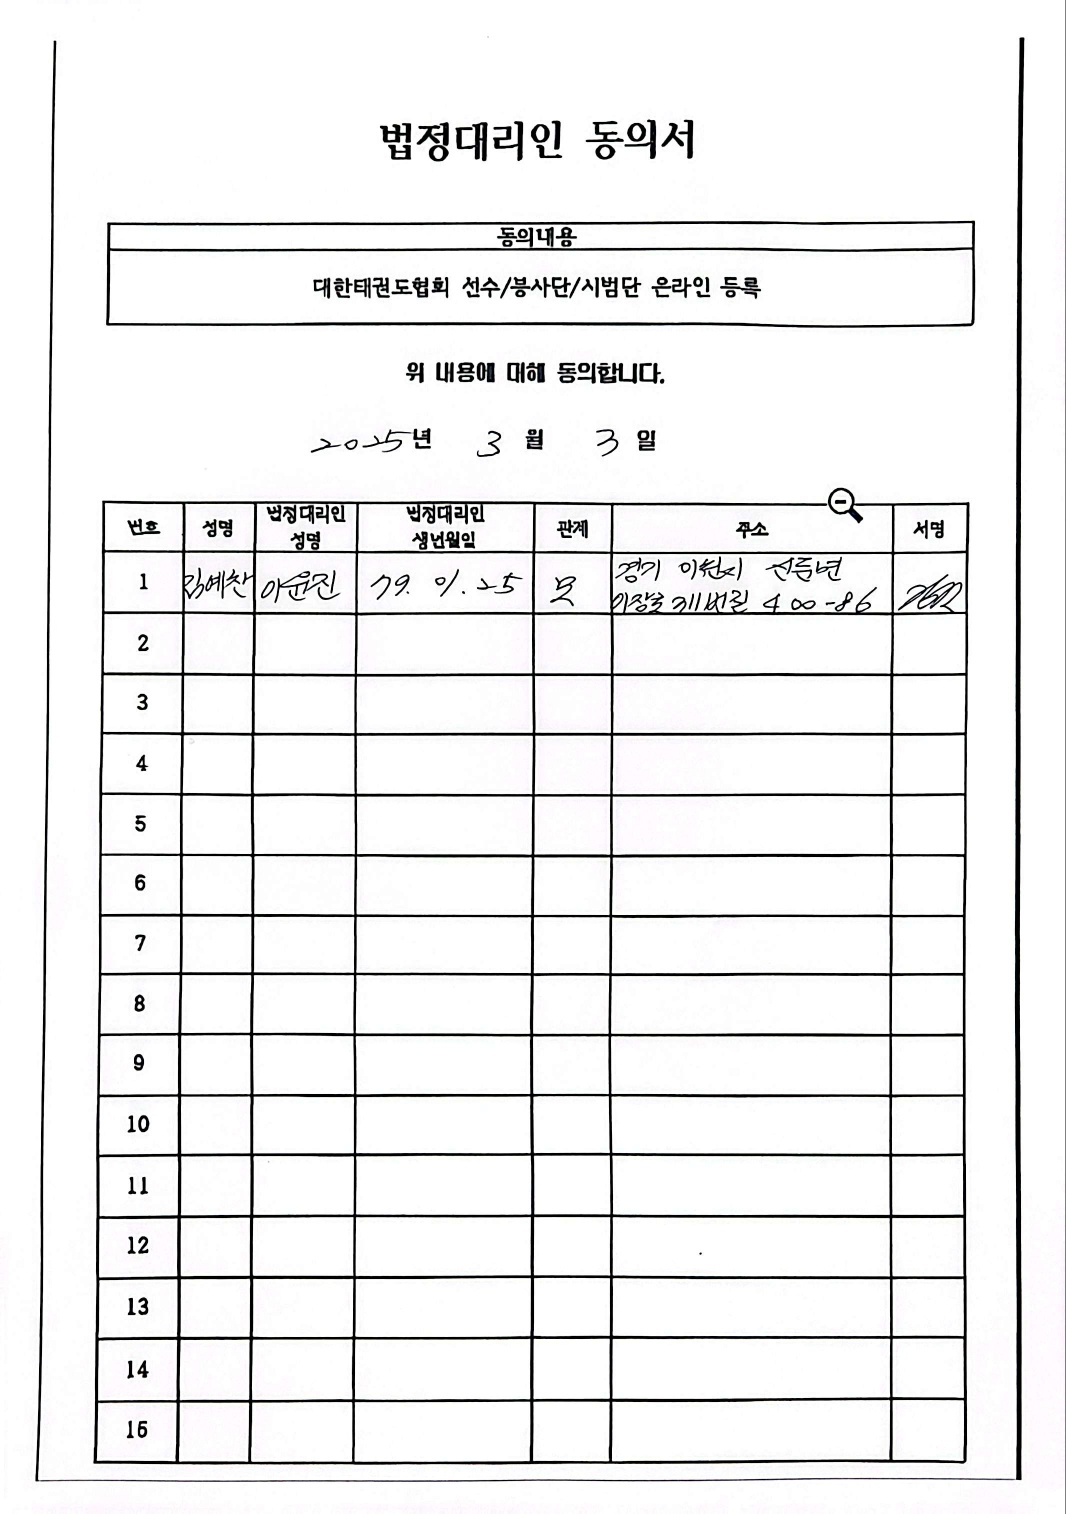 법정대리인 동의서
동의내용
대한태권도협회 선수/봉사단/시범단 온라인 등록
위 내용에 대해 동의합니다.
2025년 3월 3일
번호 성명 법정대리인 성명 법정대리인 생년월일 관계 주소 서명
1 김예찬 이윤진 79. 01. 25 모 경기 이천시
400-86
2
3
4
5
6
7
8
9
10
11
12
13
14
15